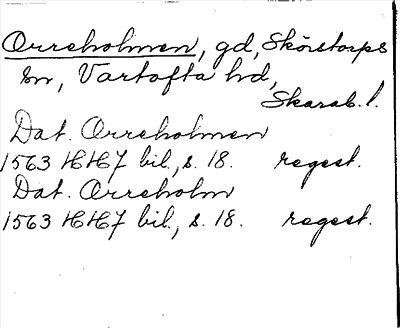 Orreholmen, gd, Skörstorps
sn, Vartofta hd,
Skarab. l.
Dat. Orreholmen
1563 HH7 bil., s. 18. regest.
Dat. Orreholm
1563 HH7 bil., s. 18. regest.